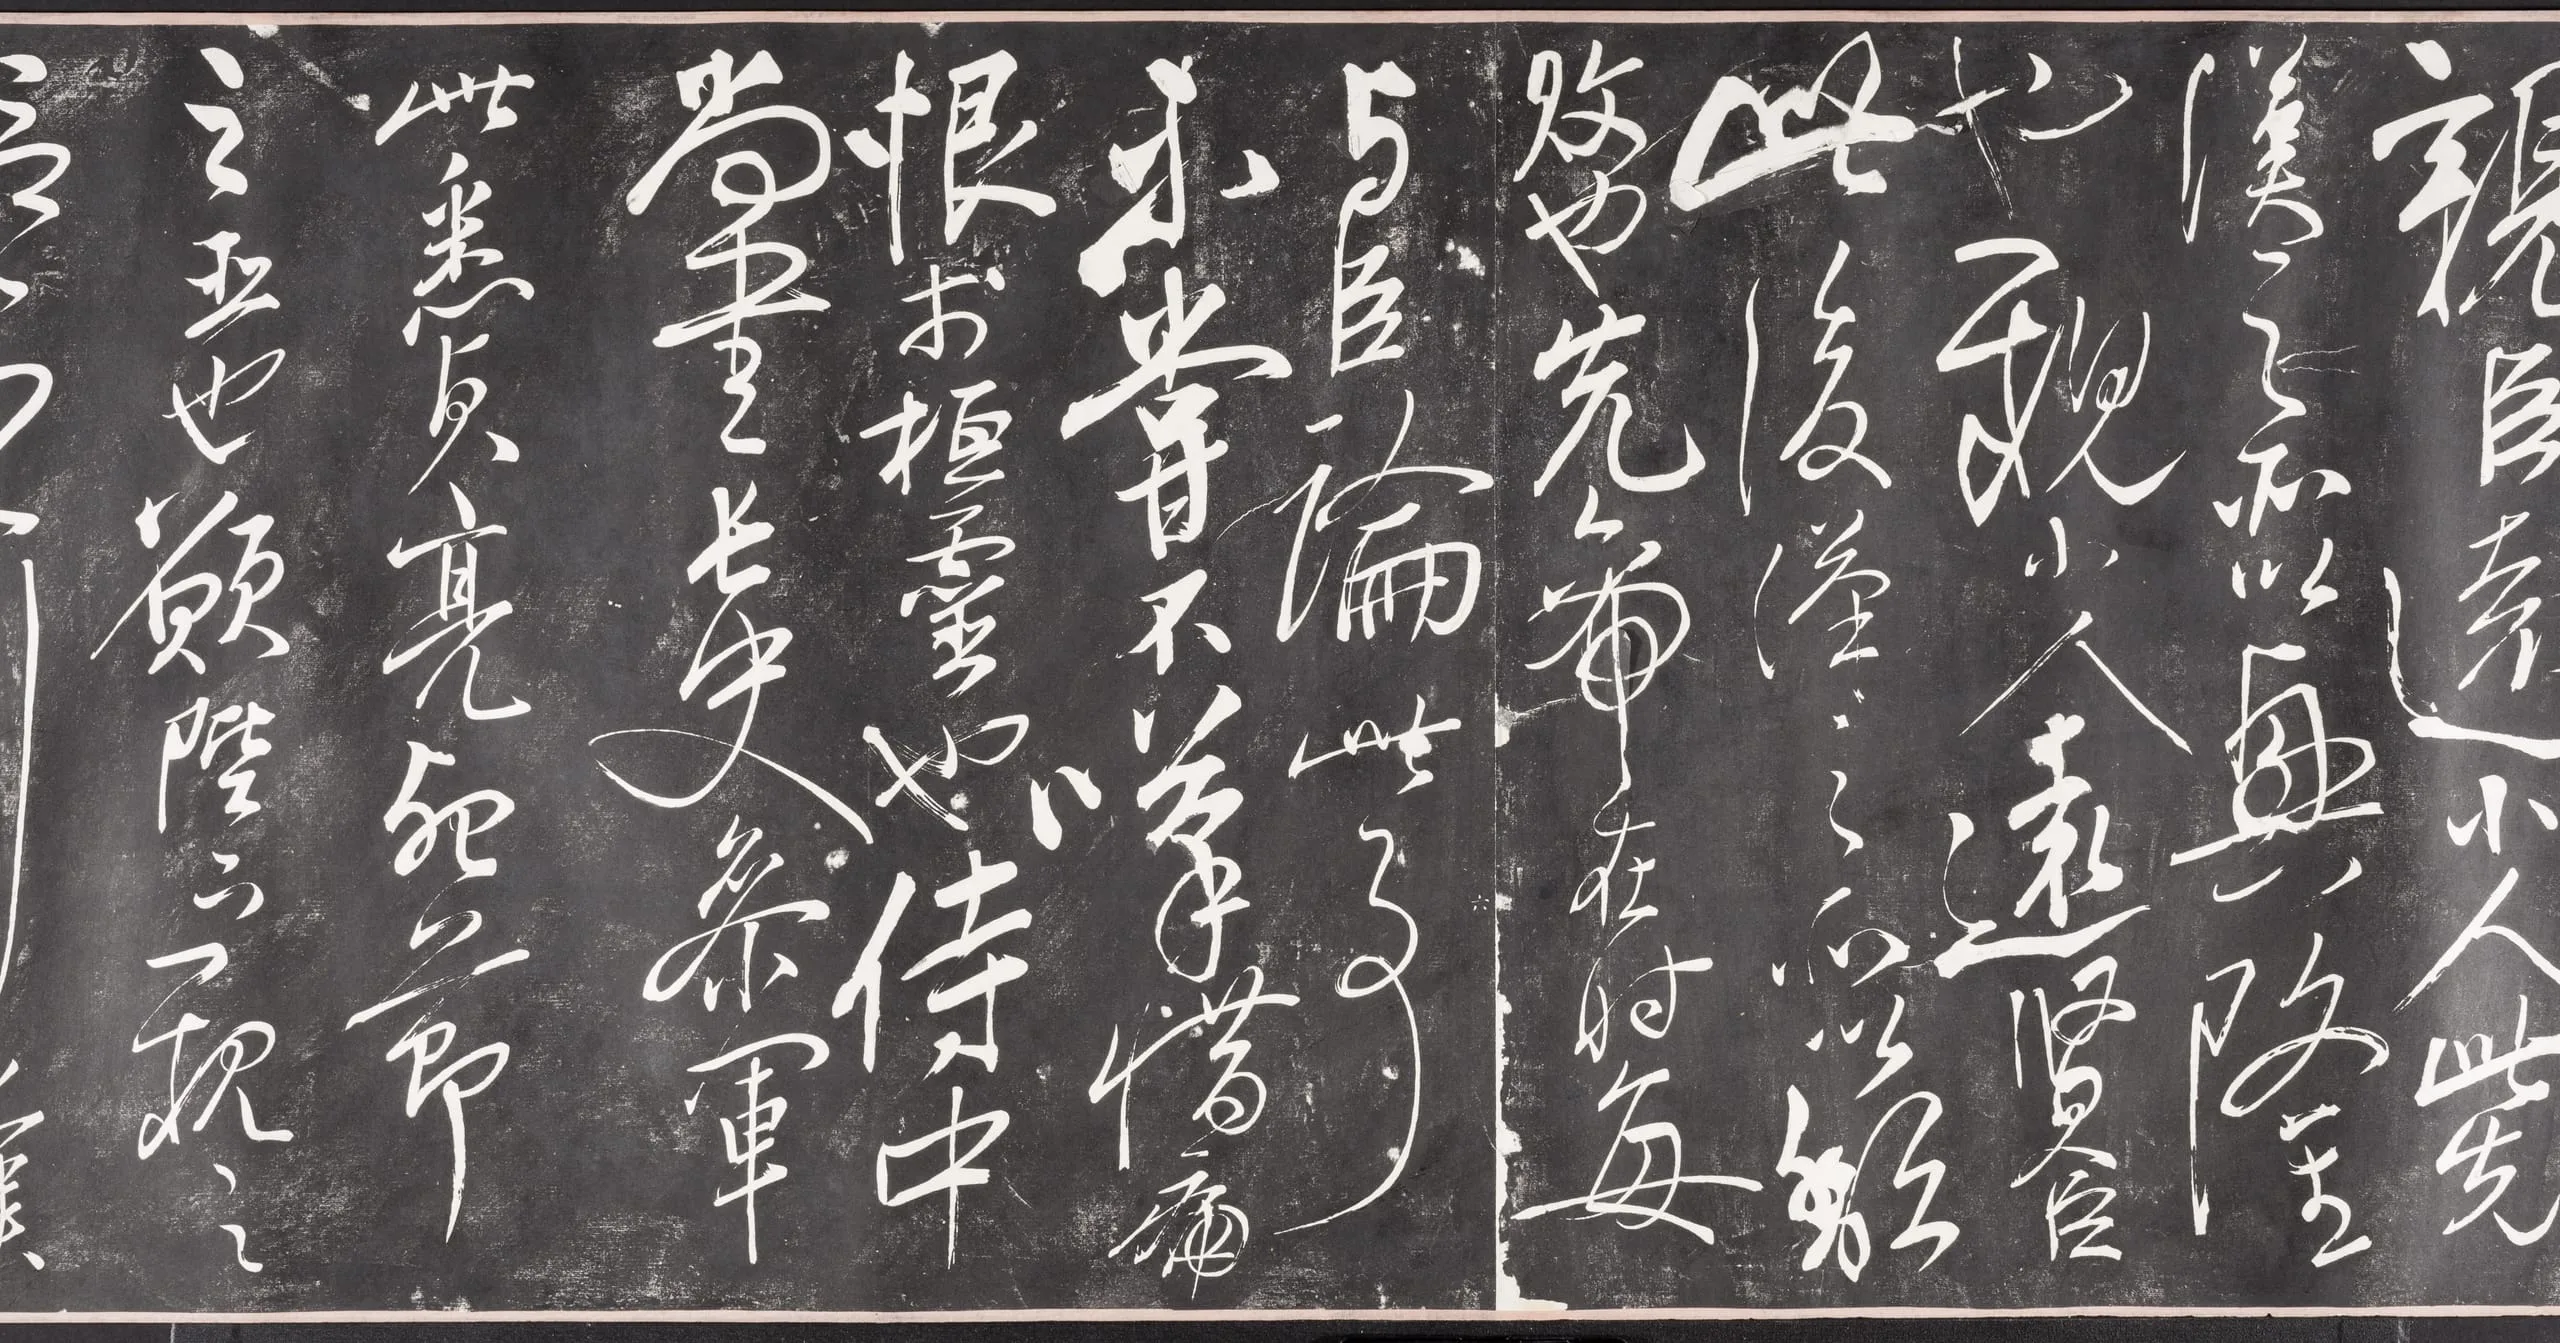 親臣遠小人此先
漢之所以興隆
也親小人遠賢臣
此後漢之所以頹
敗也先帝在時每
与臣論此事
未嘗不嘆惜痛
恨於桓靈也侍中
尚書長史參軍
此悉貞亮死節
之臣也願陛下親之